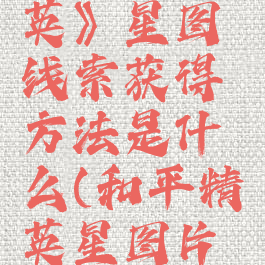 英》星图
线索获得
方法是什
么(和平精
英星图片